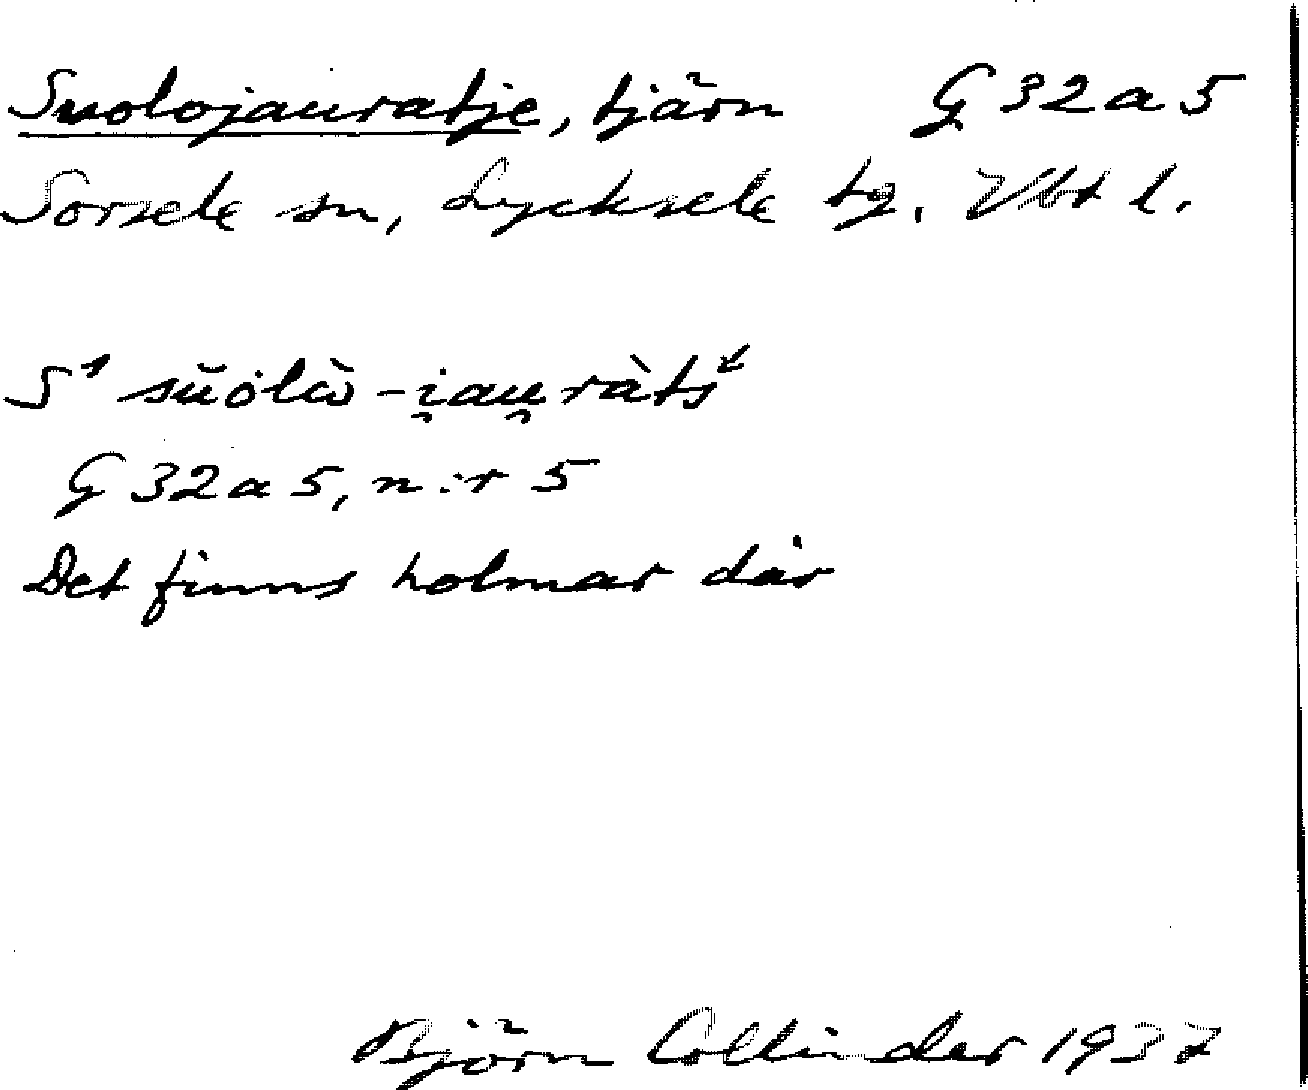 Suolojauratje, tjärn G 32 a 5
Sorsele sn, Lycksele tg. Vbt l.
S¹ sŭȯlὼ-i̯au̯ràts
G 32 a 5, n:r 5
Det finns holmar där
Björn Collinder 1937